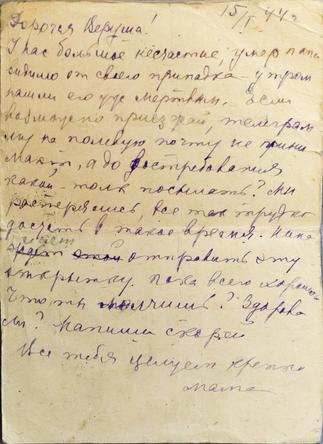 15/I 44 г.
Дорогая Веруша!
У нас большое несчастие, умер папа
видимо от своего припадка - утром
нашли его уже мертвым. Если
возможно приезжай, телеграм
му на полевую почту не прини
мают, а до востребования
какой толк посылать? Мы
растерялись, все так трудно
достать в такое время. Нина
идет отправить эту
открытку. Пока всего хорошего
Что ты молчишь? Здорова
ли? Напиши скорей
Все тебя целуем крепко
мама